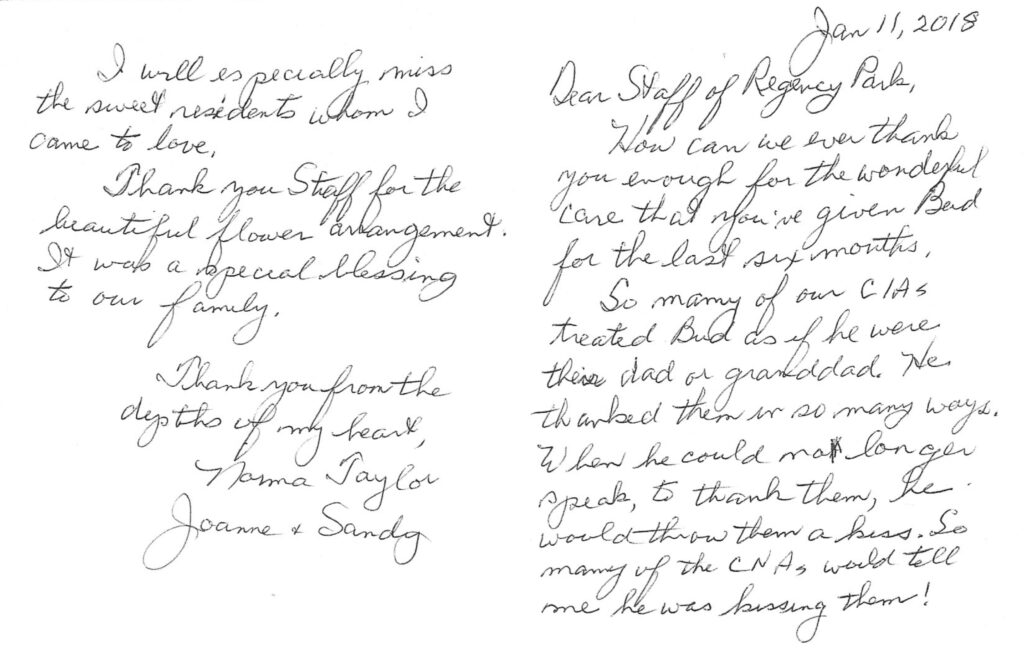 Jan 11, 2018
Dear Staff of Regency Park,
How can we ever thank
you enough for the wonderful
care that you've given Bud
for the last six months.
So many of our CIAs
treated Bud as if he were
their dad or granddad. He
thanked them in so many ways.
When he could no longer
speak, to thank them, he
would throw them a kiss. So
many of the CNAs would tell
me he was kissing them!
I will especially miss
the sweet residents whom I
came to love.
Thank you Staff for the
beautiful flower arrangement.
It was a special blessing
to our family.
Thank you from the
depths of my heart,
Norma Taylor
Joanne + Sandy